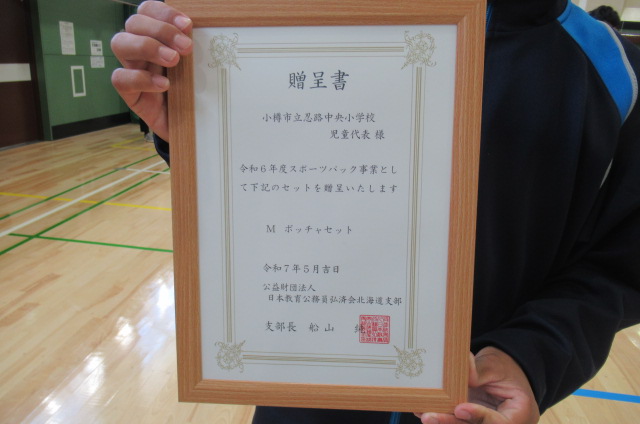 贈呈書
小樽市立忍路中央小学校
児童代表 様
令和6年度スポーツパック事業とし
て下記のセットを贈呈いたします
M ボッチャセット
令和7年5月吉日
公益財団法人
日本教育公務員弘済会北海道支部
支部長 船山